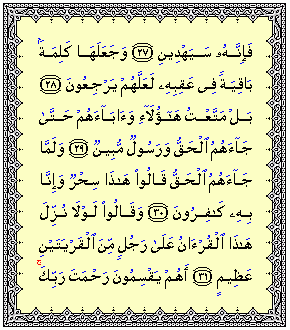 فَإِنَّهُۥ سَيَهْدِينِ ﴿٢٧﴾ وَجَعَلَهَا كَلِمَةًۢ
بَاقِيَةً فِى عَقِبِهِۦ لَعَلَّهُمْ يَرْجِعُونَ ﴿٢٨﴾
بَلْ مَتَّعْتُ هَٰٓؤُلَآءِ وَءَابَآءَهُمْ حَتَّىٰ
جَآءَهُمُ ٱلْحَقُّ وَرَسُولٌ مُّبِينٌ ﴿٢٩﴾ وَلَمَّا
جَآءَهُمُ ٱلْحَقُّ قَالُوا۟ هَٰذَا سِحْرٌ وَإِنَّا
بِهِۦ كَٰفِرُونَ ﴿٣٠﴾ وَقَالُوا۟ لَوْلَا نُزِّلَ
هَٰذَا ٱلْقُرْءَانُ عَلَىٰ رَجُلٍ مِّنَ ٱلْقَرْيَتَيْنِ
عَظِيمٍ ﴿٣١﴾ أَهُمْ يَقْسِمُونَ رَحْمَتَ رَبِّكَ